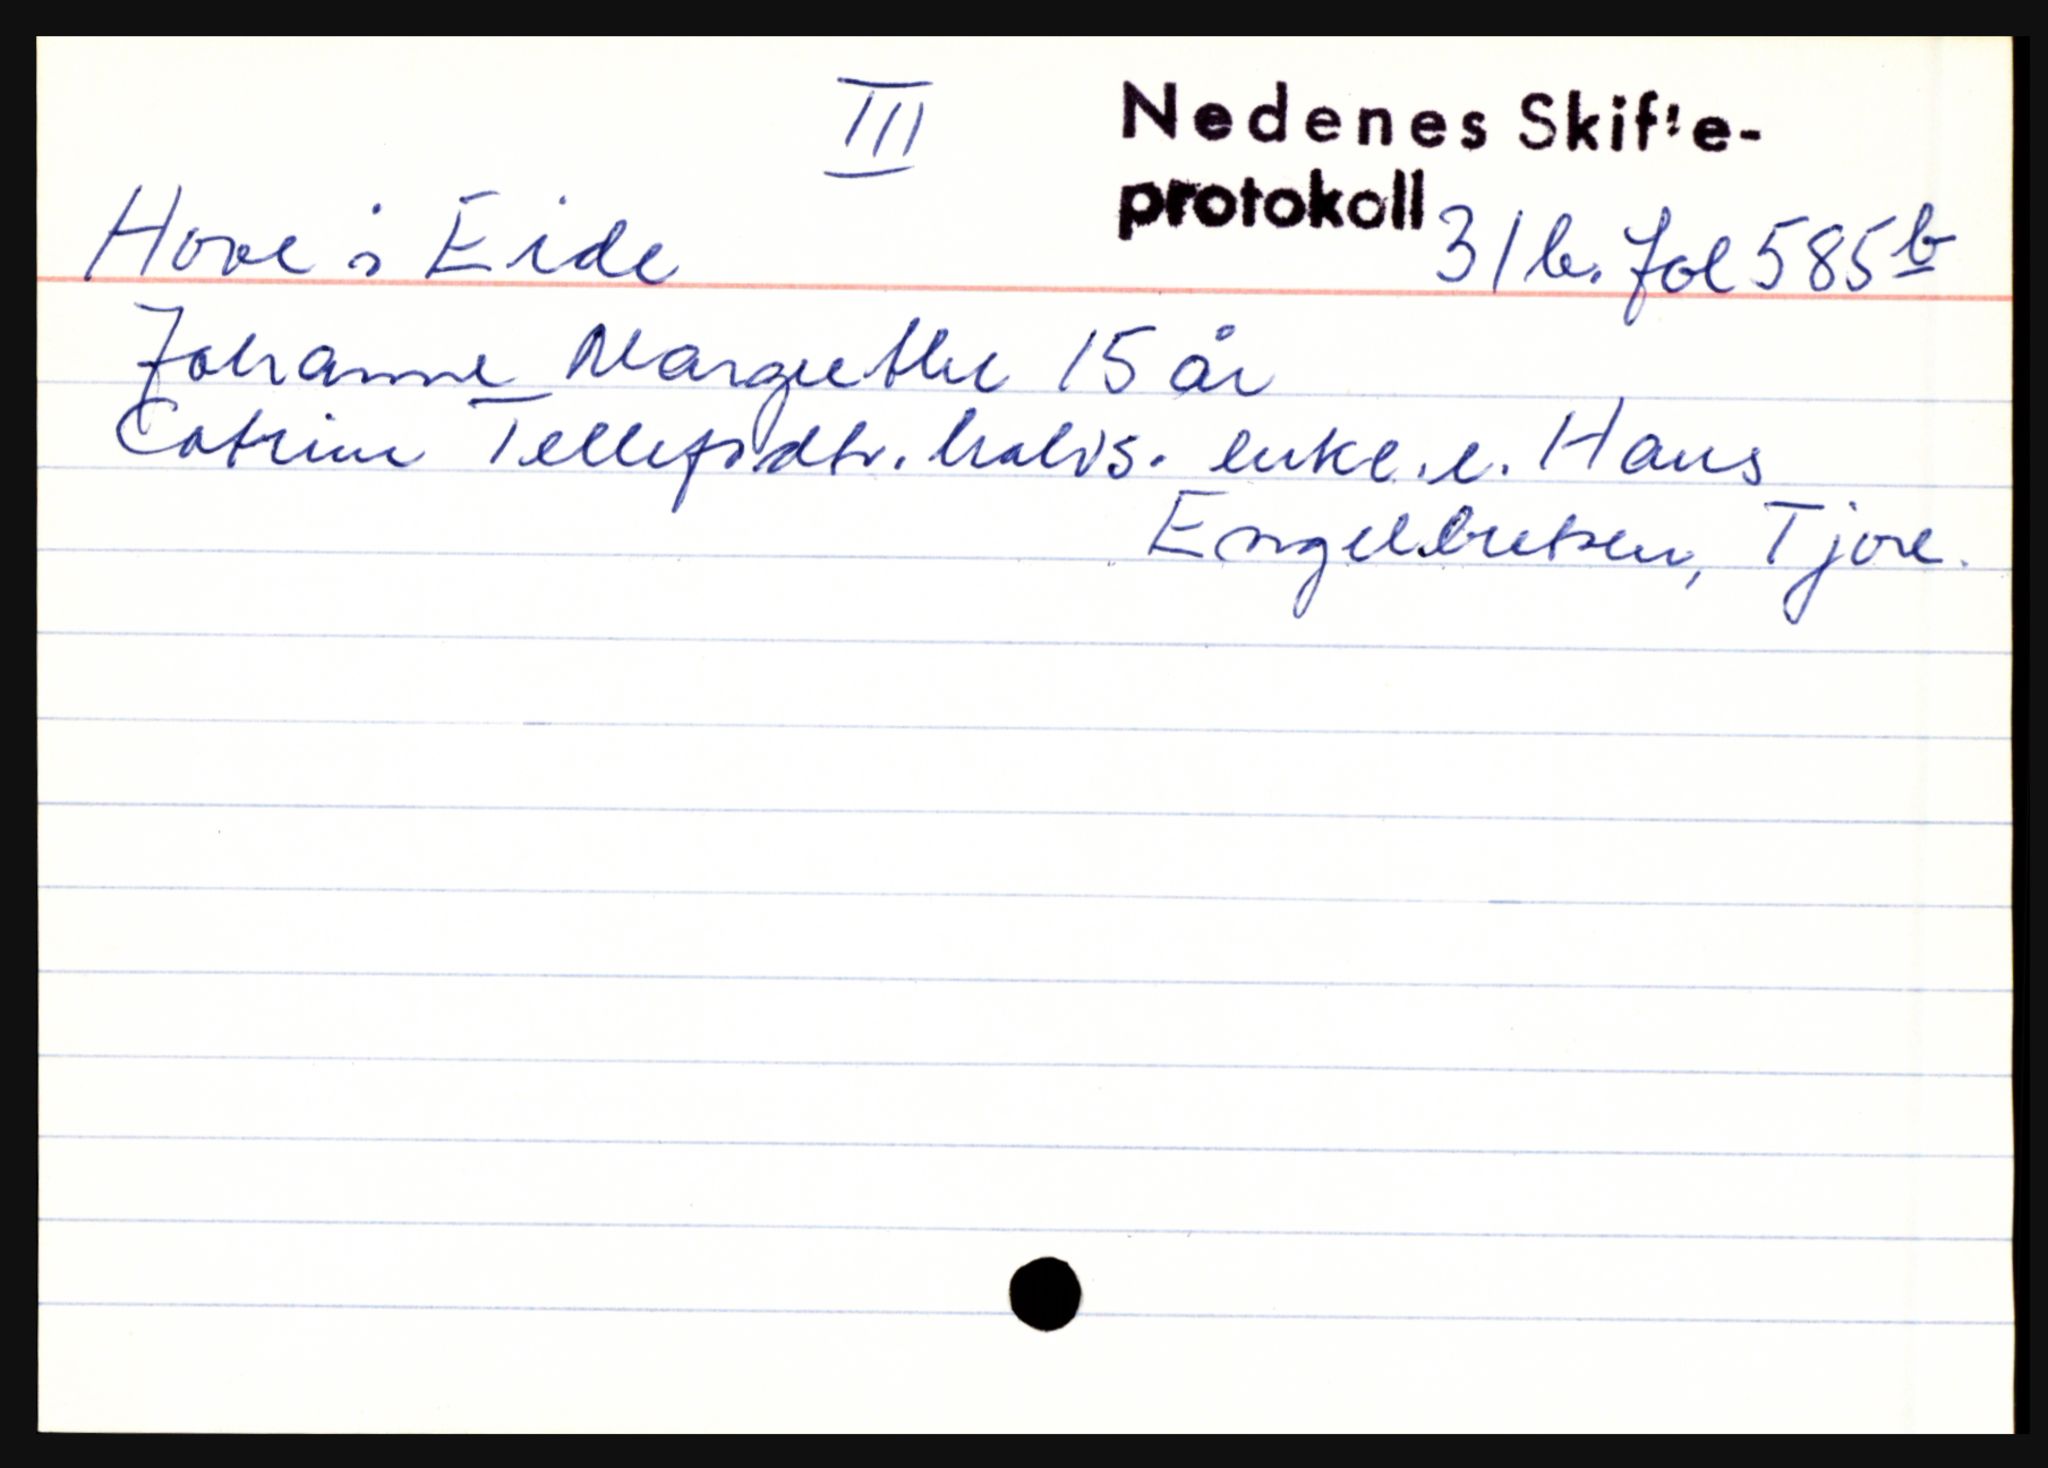 III
Nedenes Skifte-
protokoll 31b. fol 585b
Hove i Eide
Johanne Margrethe 15 år
Catrine Tellefsdtr. halvs. enke.e. Hans
Engelbretsen, Tjore.